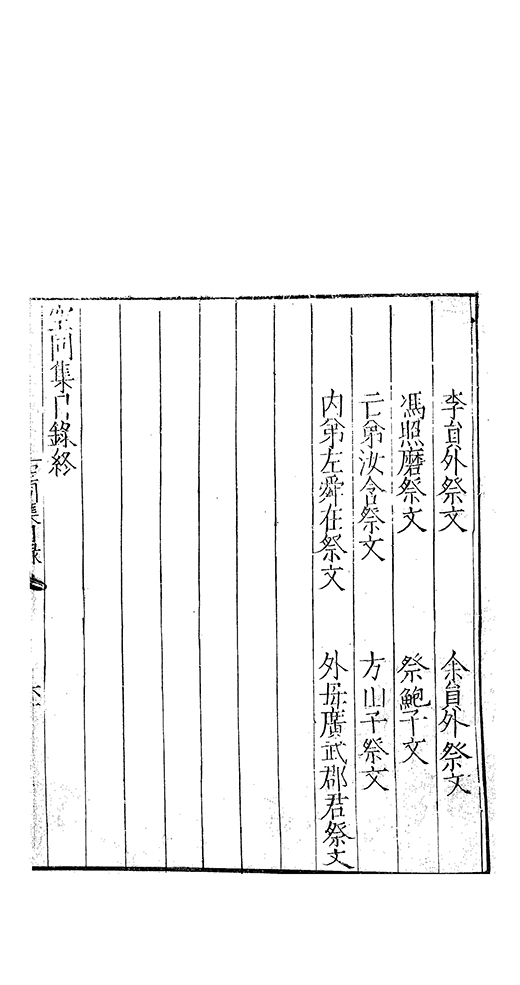 李員外祭文　余員外祭文
馮照磨祭文　祭鮑子文
亡弟汝含祭文　方山子祭文
内弟左舜在祭文　外母廣武郡君祭文
空同集目錄終
空同集目録